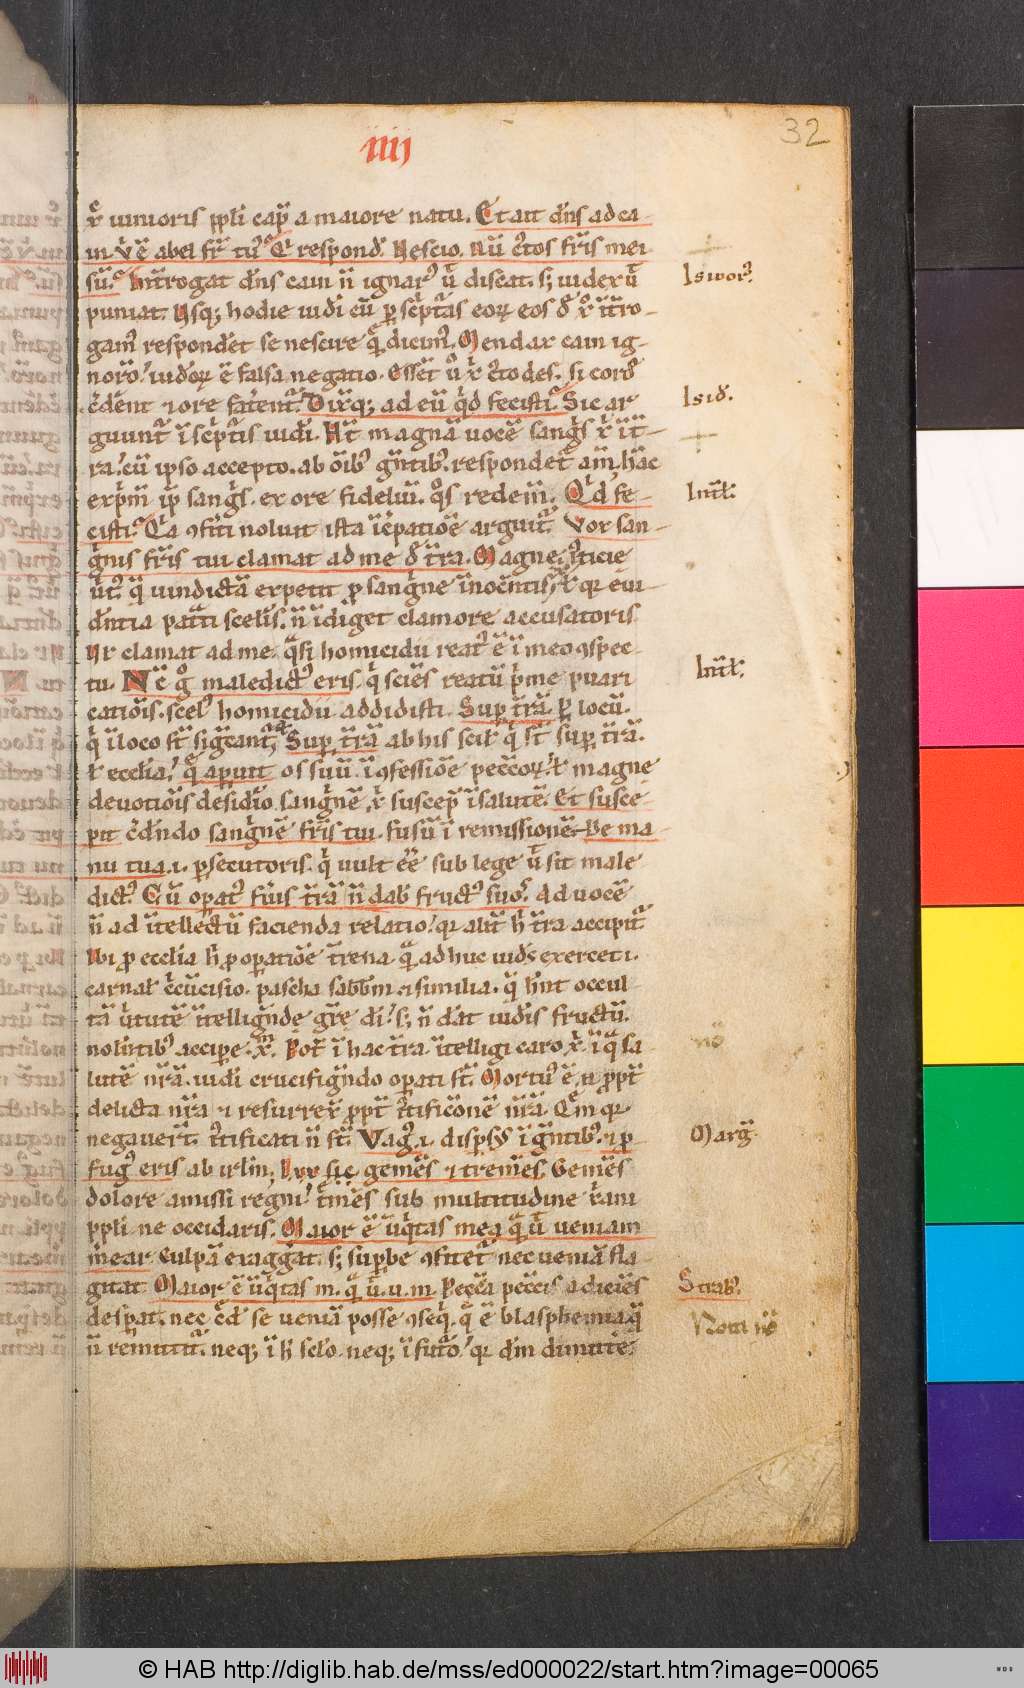 32
iiij
xͨ iunioris ppli cap̄ a maiore natu. Et ait dn̄s ad ca-
in. vͥ ē abel fr̄ tuꝰ Qͥ respond̄. Nescio. Nū cͣtos fr̄is mei
sū. Int̄rogat dn̄s cain n̄ ignarꝰ ut̄ discat. sꝫ iudex ut̄
Isidorꝰ.
puniat. Usqꝫ hodie iudi cū ꝑ sc̄pt̄as eoꝝ eos d̄ xͦ int̄ro-
gam̄ respondēt se nescire qͥd dicimꝰ. Mendax cain ig-
noro. iudoꝝ ē falsa negatio. Esset uͦ xͥ cͣtodes. si cord̄
cͣdēnt ⁊ ore fatent̄. Dixqꝫ ad eū qͥd fecisti. Sic ar
Isid̄.
guunt̄ ī sc̄ptis iudi. At magnā uocē sang̃s xͥ īt̄-
ra. cū ipso accepto. ab oīb; gn̄tibꝰ. respondet̄ am̄. hāc
exp̄m̄ ip̄ sang̃s. ex ore fideliū. qͦs redem̄. Qͥd fe-
Int̄l.
cisti. Qͥa ꝯfit̄i noluit ista īc̄patiōe arguit̄. Vox san-
gͥnis fr̄is tui clamat ad me d̄ t̄ra. Magne
ut̄ꝰ qͥ uindictā expetit ꝓ sangͥne īnocn̄tis
dn̄tia patͣti sceleris. n̄ īdiget clamore accusatoris
Ur clamat ad me. qͣsi homicidii reatꝰ ē ī meo ꝯspec-
Int̄l.
tu. Nc̄ gͦ maledictꝰ eris. qͥ sciēs reatū pͥme p̄uari
catiōis. scelꝰ homicidii addidisti. Sup̄ t̄rā. ꝑ locū.
qͥ ī loco st̄ sig̃cant̄. Sup̄ t̄rā ab his scil̄ qͥ st̄ sup̄ t̄rā.
ł eccl̄ia. qͥ apuit os suū. ī ꝯfessiōe pecc̄oꝝ. ł magne
deuotiōis desid̄io. sangͥnē xͥ suscep̄ ī salutē. Et susce-
pit cͣdn̄do sangͥnē fr̄is tui. fusū ī remissionē. De ma-
nu tua .i. ꝑsecutoris. qͥ uult ēē sub lege ut̄ sit male
dictꝰ. Cū opatꝰ fūis t̄rā n̄ dab̄ fructꝰ suoꝰ. Ad uocē
n̄ ad ītellectū facienda relatio. qꝛ alit̄ h̄ t̄ra accipit̄
ibi ꝓ eccl̄ia h̄ ꝓ opatiōe t̄rena. qͣ adhuc iud̄s exercet .i.
carnal̄ cͥcūcisio. pascha sabb̄m. ⁊ similia. qͥ hn̄t occul
tā uͥtutē ītelligͥnde gr̄e dī. sꝫ n̄ dat iud̄is fructū.
nolūtibꝰ accipe. xͫ. Pot̄ ī hac t̄ra ītelligi caro xͥ. ī qͣ sa
nō
lutē nr̄ā. iudi crucifigͥndo opati st̄. Mortuꝰ ē .n̄ ꝓpt̄
delicta nr̄a ⁊ resurrex̄ ꝓpt̄ iͥtificōnē nr̄ā. Qm̄ qꝛ
negauer̄t. iͥtificati n̄ st̄. Vagꝰ .i. disꝑsꝰ ī gn̄tibꝰ. ⁊ ꝓ-
Marg̃
fugꝰ eris ab irl̄m. lxx sic gemēs ⁊ tremēs. Gemēs
dolore amissi regni. tͥmēs sub multitudine xͥani
ppli ne occidaris. Maior ē iniqͥtas mea qͣ ut̄ ueniam
mear̄ Culpā exagg̃at. sꝫ suꝑbe ꝯfitet̄ nec ueniā fla
gitat Maior ē iniqͥtas m. qͣ ut̄. u. m. Peccͣa pecc̄is adiciēs
Strab̄.
desꝑat. nec cͣd̄ se ueniā posse ꝯseqͥ. qͥ ē blasphemia qͣ
Nota nō
n̄ remittit̄. neqꝫ ī h̄ sclo. neqꝫ ī futͦo. qꝛ dm̄ dimitte
© HAB http://diglib.hab.de/mss/ed000022/start.htm?image=00065